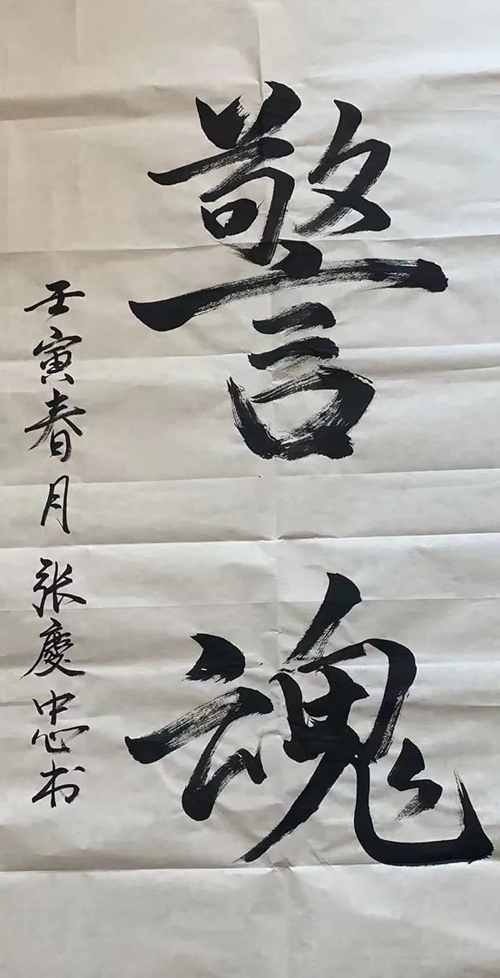 警魂
壬寅春月 张慶忠书